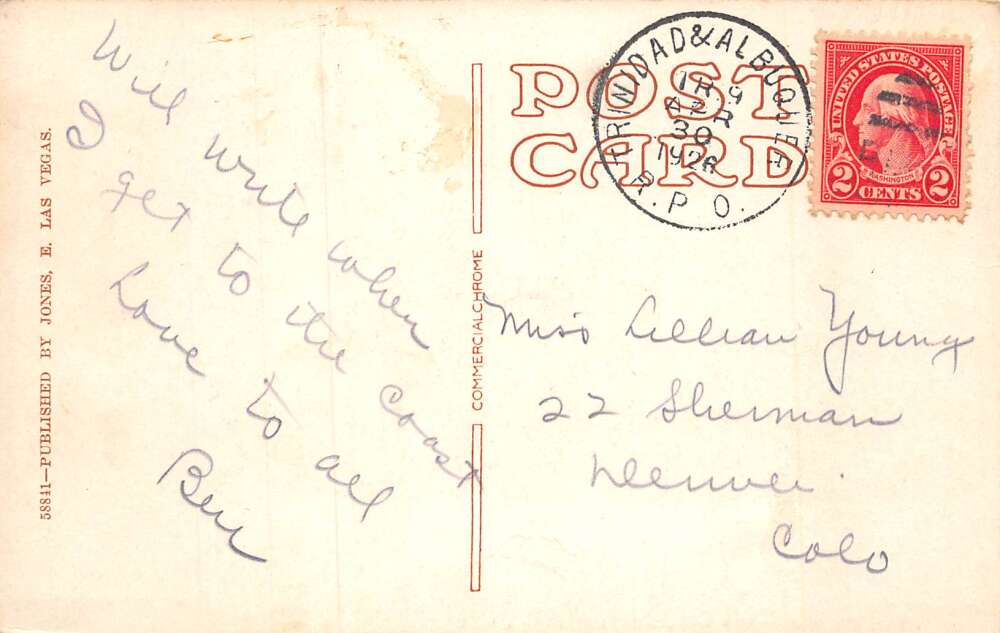 Will write when
I get to the coast
Love to all
58841—PUBLISHED BY JONES, E. LAS VEGAS.
COMMERCIALCHROME
POST
CARD
TRINIDAD & ALBUQUER
TR 9
APR
30
1926
R.P.O.
UNITED STATES POSTAGE
WASHINGTON
2 CENTS 2
Miss Lillian Young
22 Sherman
Denver
Colo